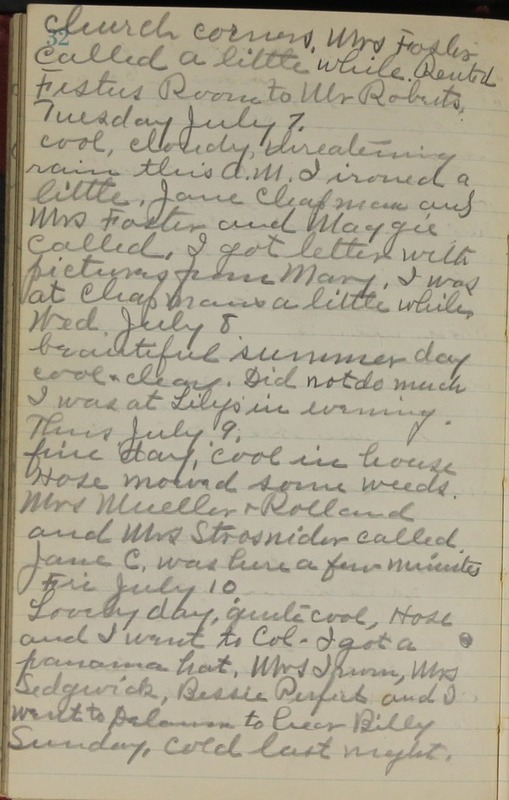 32
church corners. Mrs Foster
called a little while. Rented
Festus Room to Mr Roberts.
Tuesday July 7.
cool, cloudy, threatening
rain this A.M. I ironed a
little. Jane Chapman and
Mrs Foster and Maggie
called. I got letter with
pictures from Mary. I was
at Chapmans a little while.
Wed July 8
beautiful summer day
cool & clear. Did not do much
I was at Lily's in evening.
Thurs July 9.
fine day, cool in house
Hose mowed some weeds.
Mrs Mueller & Rolland
and Mrs Strosnider called.
Jane C. was here a few minutes
Fri July 10
Lovely day, quite cool, Hose
and I went to Col. I got a
panama hat. Mrs Irwin, Mrs
Sedgwick, Bessie and I
went to to hear Billy
Sunday. Cold last night.